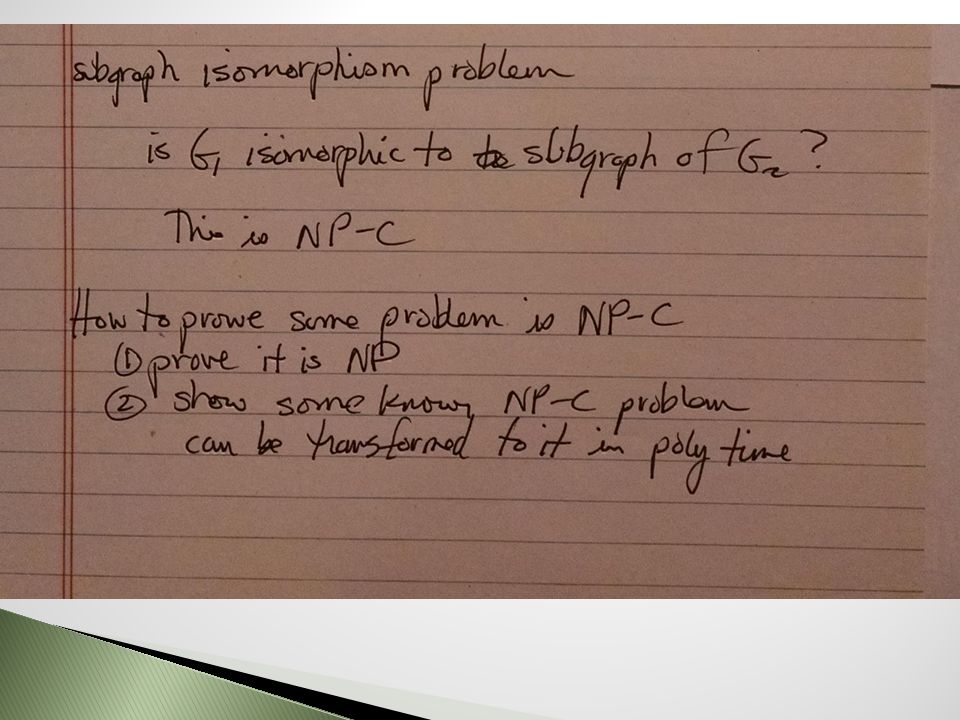 subgraph isomorphism problem
is G₁ isomorphic to to subgraph of G₂?
This is NP-C
How to prove some problem is NP-C
① prove it is NP
② show some known NP-C problem
can be transformed to it in poly time